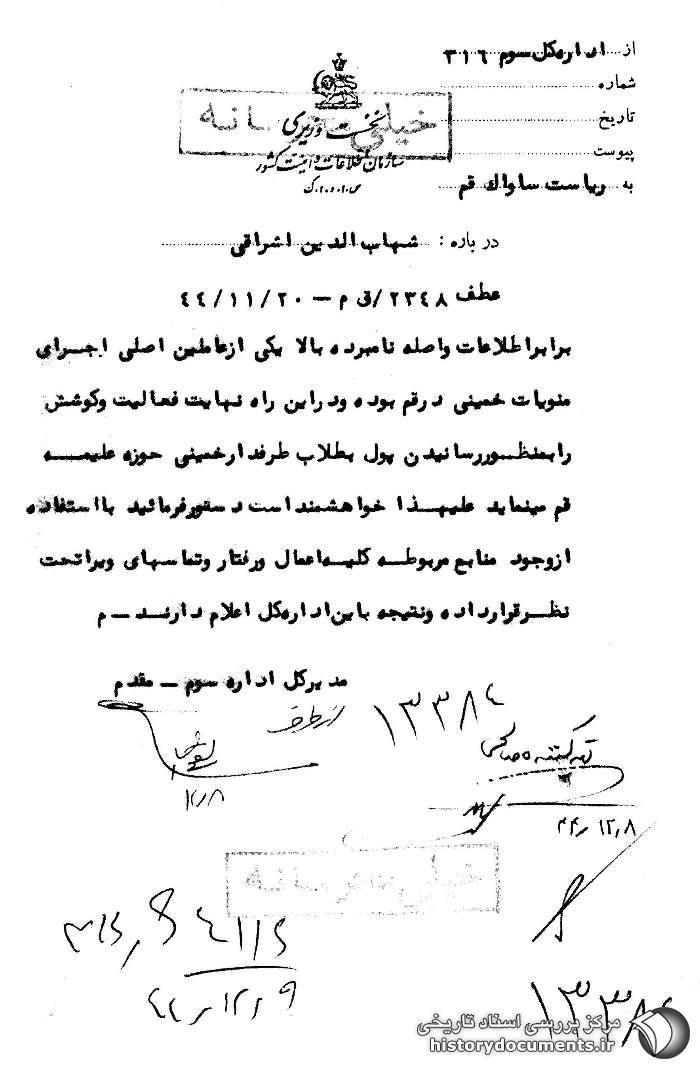 از اداره کل سوم ۳۱۶
شماره
تاریخ
پیوست
به ریاست ساواک قم
خیلی محرمانه
نخست وزیری
سازمان اطلاعات و امنیت کشور
س.ا.و.ا.ک
درباره : شهاب الدین اشراقی
عطف ۲۳۴۸/ق م – ۴۴/۱۱/۲۰
برابر اطلاعات واصله نامبرده بالا یکی از عاملین اصلی اجرای
منویات خمینی در قم بوده و در این راه نهایت فعالیت و کوشش
را بمنظور رسانیدن پول بطلاب طرفدار خمینی حوزه علیمه
قم مینماید علیهذا خواهشمند است دستور فرمائید با استفاده
از وجود منابع مربوطه کلیه اعمال و رفتار و تماسهای ویرا تحت
نظر قرار داده و نتیجه باین اداره کل اعلام دارند – م
مدیرکل اداره سوم – مقدم
از طرف
۱۳۳۸۴
۱۲/۸
۴۴/۱۲/۸
خیلی محرمانه
۳۱۶
۴۴/۱۲/۹
۱۳۳۸۴
مرکز بررسی اسناد تاریخی
historydocuments.ir